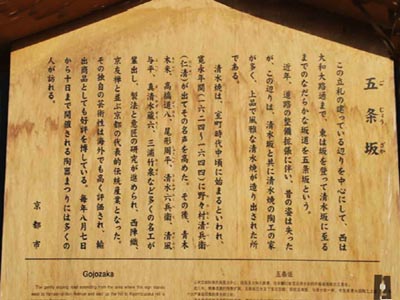 五条坂
ご じょう ざか
この立札の建っている辺りを中心にして、西は
大和大路通まで、東は坂を登って清水坂に至る
までのなだらかな坂道を五条坂という。
近年、道路の整備拡張に伴い、昔の姿は失った
が、この辺りは、清水坂と共に清水焼の陶工の家
が多く、上品で風雅な清水焼が造り出された所
である。
清水焼は、室町時代中頃に始まるといわれ、
寛永年間(一六二四〜一六四四)に野々村清兵衛
(仁清)が出てその名声を高めた。その後、青木
木米、高橋道八、尾形周平、清水六兵衛、清風
与平、真清水蔵六、三浦竹泉など多くの名工が
輩出し、製法と意匠の研究が進められ、西陣織、
京友禅と並ぶ京都の代表的伝統産業となった。
その独自の芸術性は海外でも高く評価され、輸
出商品としても好評を博している。毎年八月七日
から十日まで開催される陶器まつりには多くの
人が訪れる。
京都市
Gojozaka
The gently sloping road extending from the area where this sign stands
五条坂